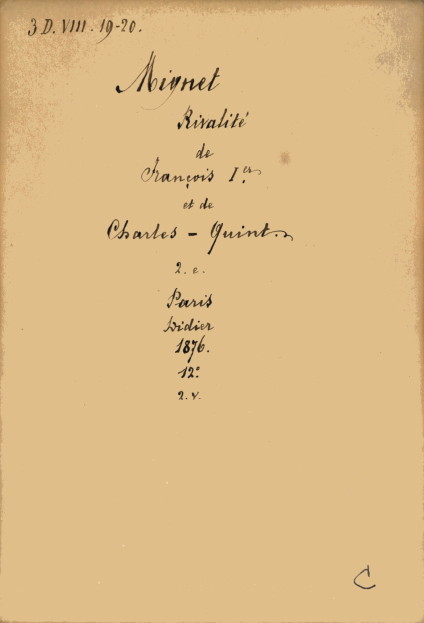 3 D. VIII. 19-20.
Mignet
Rivalité
de
François Ier.
et de
Charles - Quint.
2. e.
Paris
Didier
1876.
12°
2. v.
C